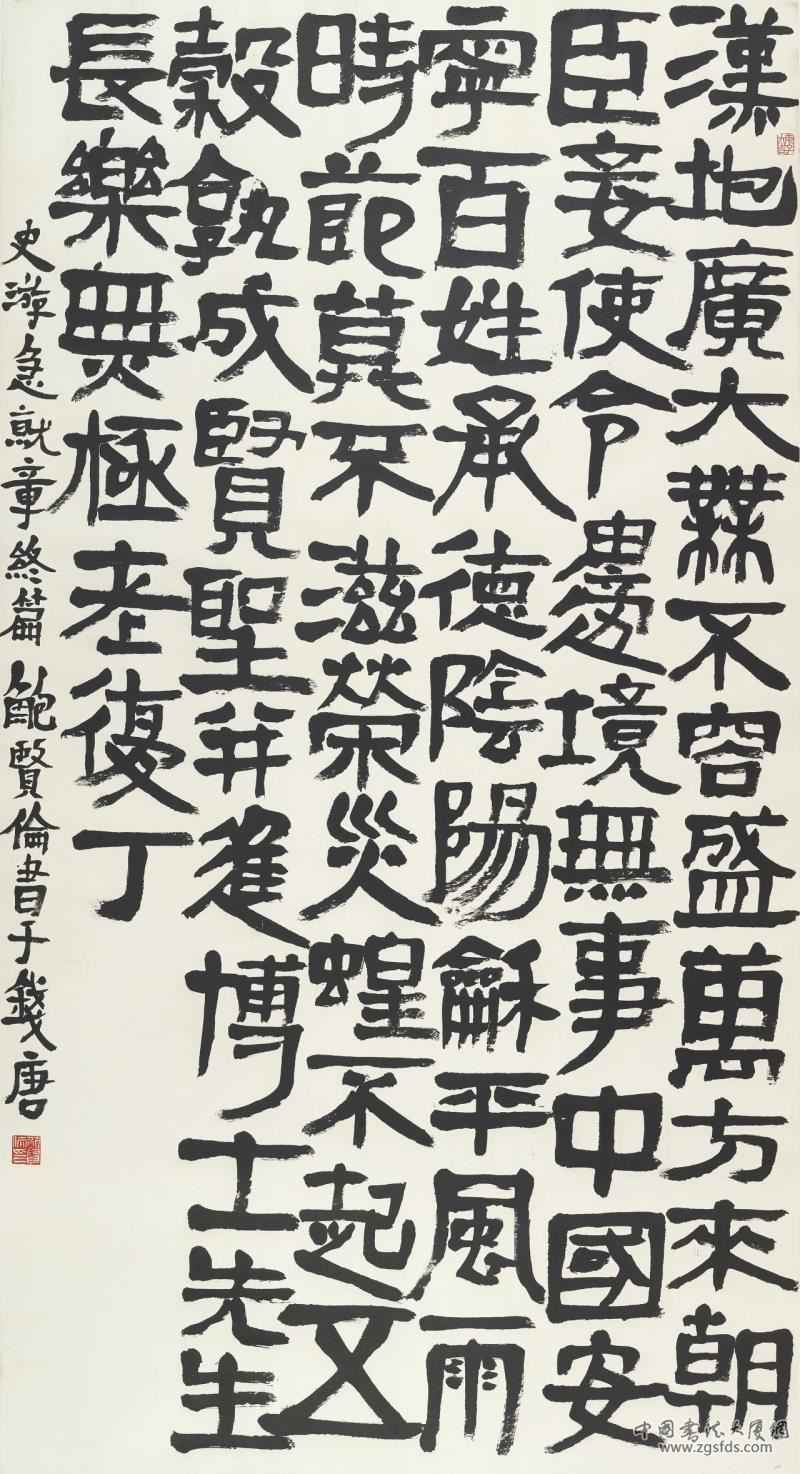 漢地廣大無不容盛萬方來朝
臣妾使令邊境無事中國安
寧百姓承德陰陽龢平風雨
時節莫不滋榮災蝗不起五
穀孰成賢聖并進博士先生
長樂無極老復丁
史游急就章終篇鮑賢倫書于錢唐
中国书法大厦网
www.zgsfds.com